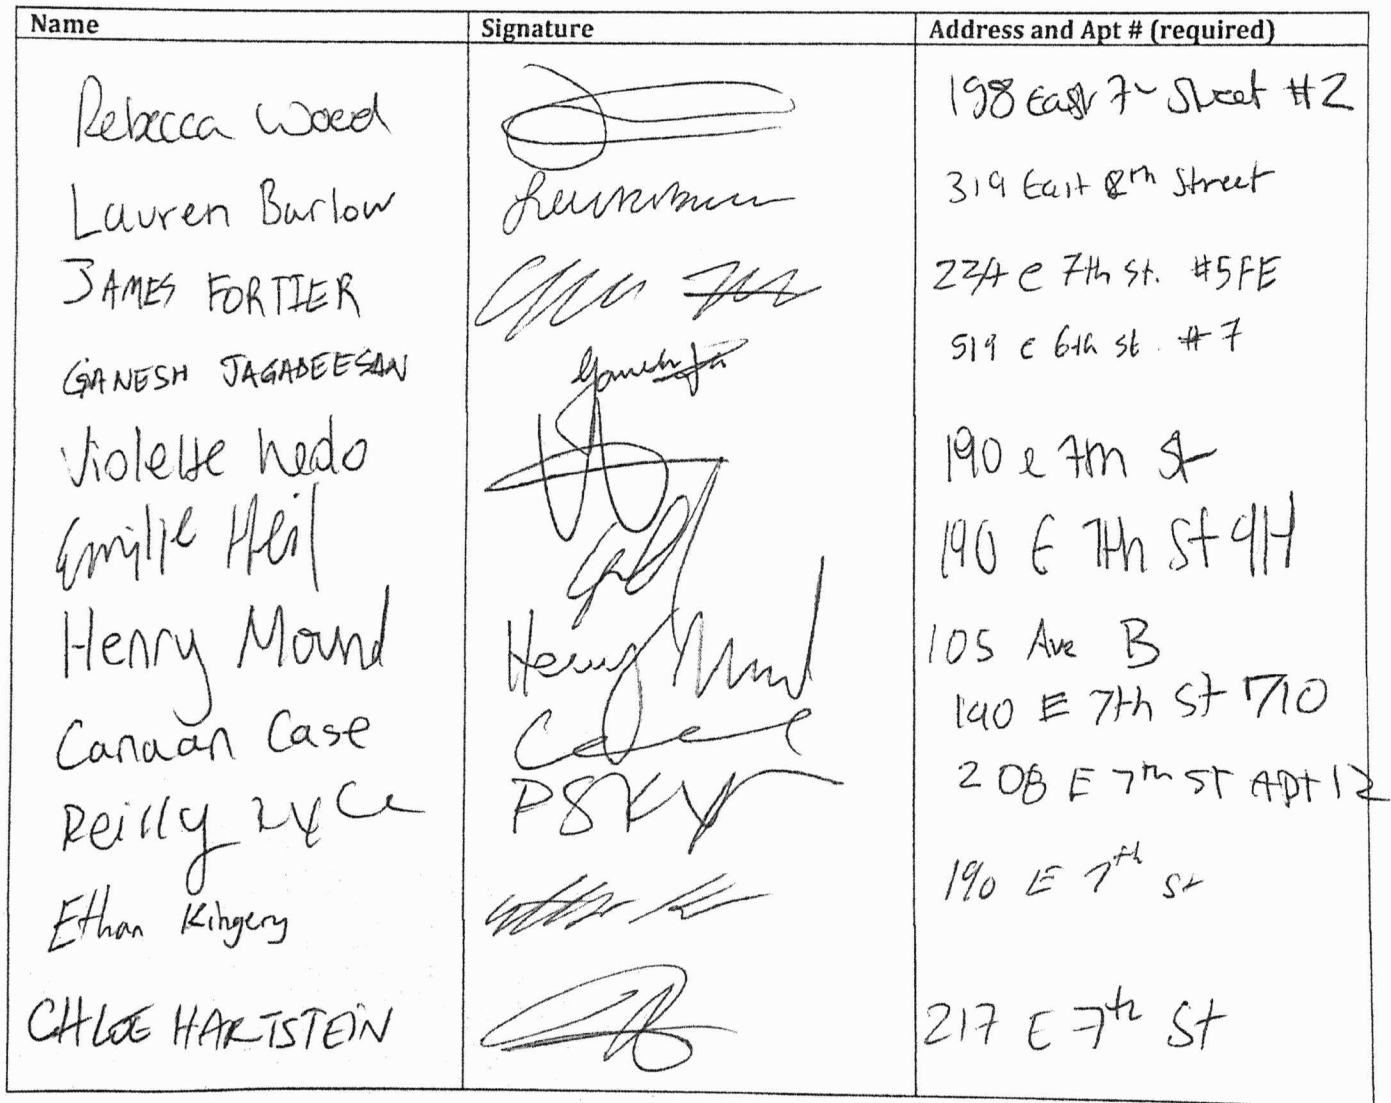 Name Signature Address and Apt # (required)
Rebecca Wood 198 East 7 Street #2
Lauren Barlow 319 East 8th Street
JAMES FORTIER 234 e 7th St. #5FE
GANESH JAGADEESAN 519 e 6th st. #7
Violette Nedo 190 e 7th St
Emilie Heil 190 E 7th St 9H
Henry Mound Henry Mound 105 Ave B
Canaan Case 190 E 7th St 710
Reilly 208 E 7th ST APt 12
Ethan Kingery 190 E 7th St
CHLOE HARTSTEIN 217 E 7th St